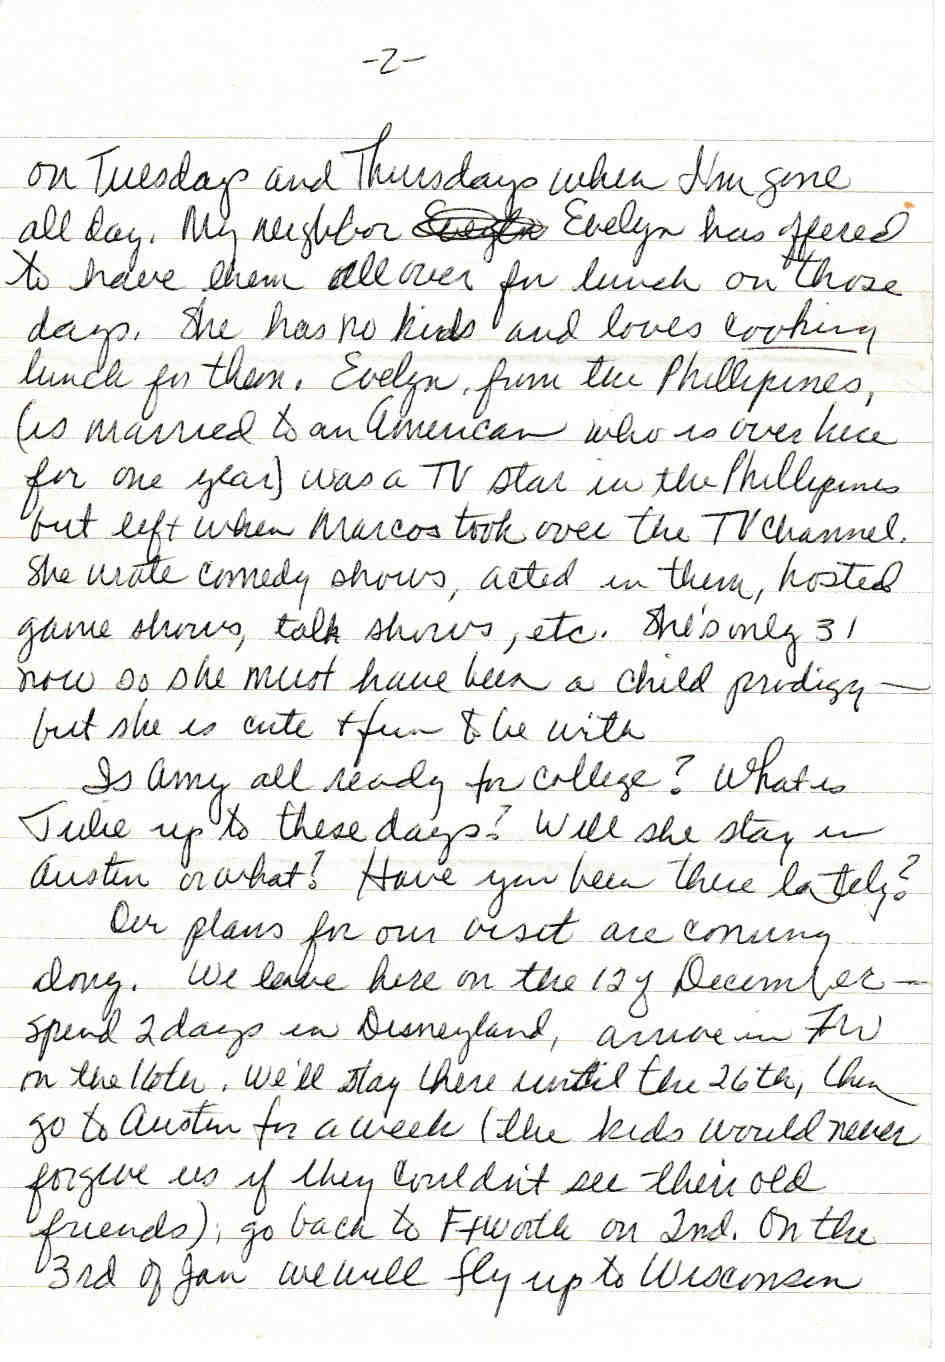 -2-
on Tuesdays and Thursdays when I'm gone
all day. My neighbor Evelyn has offered
to have them all over for lunch on those
days. She has no kids and loves cooking
lunch for them. Evelyn, from the Phillipines,
(is married to an American who is over here
for one year) was a TV star in the Phillipines
but left when Marcos took over the TV Channel.
She wrote comedy shows, acted in them, hosted
game shows, talk shows, etc. She's only 31
now so she must have been a child prodigy —
but she is cute + fun to be with
Is Amy all ready for college? What is
Julie up to these days? Will she stay in
Austin or what? Have you been there lately?
Our plans for our visit are coming
along. We leave here on the 12 of December —
spend 2 days in Disneyland, arrive in FW
on the 16th. We'll stay there until the 26th, then
go to Austin for a week (the kids would never
forgive us if they couldn't see their old
friends), go back to Ft Worth on 2nd. On the
3rd of Jan we will fly up to Wisconsin